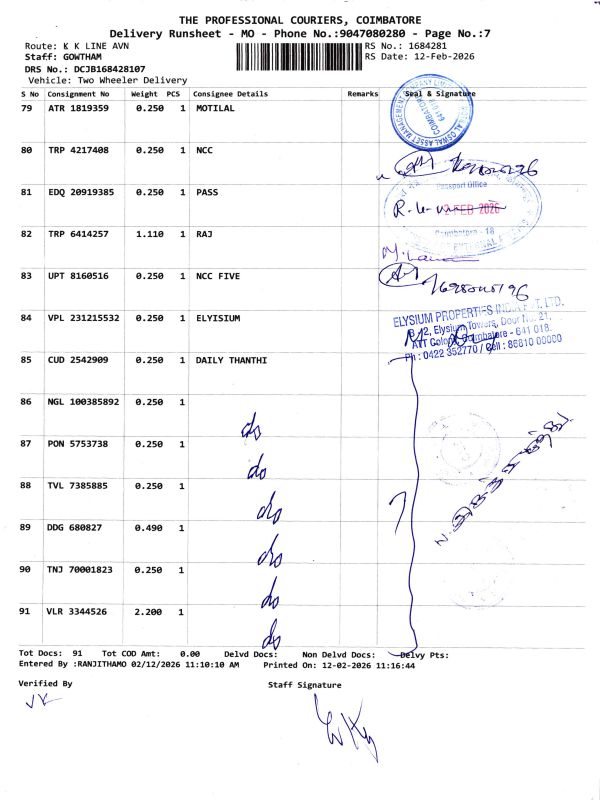 THE PROFESSIONAL COURIERS, COIMBATORE
Delivery Runsheet - MO - Phone No.:9047080280 - Page No.:7
Route: K K LINE AVN
RS No.: 1684281
Staff: GOWTHAM
RS Date: 12-Feb-2026
DRS No.: DCJB168428107
Vehicle: Two Wheeler Delivery
S No Consignment No Weight PCS Consignee Details Remarks Seal & Signature
79 ATR 1819359 0.250 1 MOTILAL
80 TRP 4217408 0.250 1 NCC
81 EDQ 20919385 0.250 1 PASS
Passport Office
2 FEB 2026
Coimbatore - 18
82 TRP 6414257 1.110 1 RAJ
83 UPT 8160516 0.250 1 NCC FIVE
84 VPL 231215532 0.250 1 ELYISIUM
ELYSIUM PROPERTIES INDIA PVT. LTD.
Elysium Towers, Door No. 21,
ATT Colony, Coimbatore - 641 018.
Ph : 0422 352770 / Cell : 86810 00000
85 CUD 2542909 0.250 1 DAILY THANTHI
86 NGL 100385892 0.250 1 do
87 PON 5753738 0.250 1 do
88 TVL 7385885 0.250 1 do
89 DDG 680827 0.490 1 do
90 TNJ 70001823 0.250 1 do
91 VLR 3344526 2.200 1 do
Tot Docs: 91 Tot COD Amt: 0.00 Delvd Docs: Non Delvd Docs: Delvy Pts:
Entered By :RANJITHAMO 02/12/2026 11:10:10 AM Printed On: 12-02-2026 11:16:44
Verified By Staff Signature